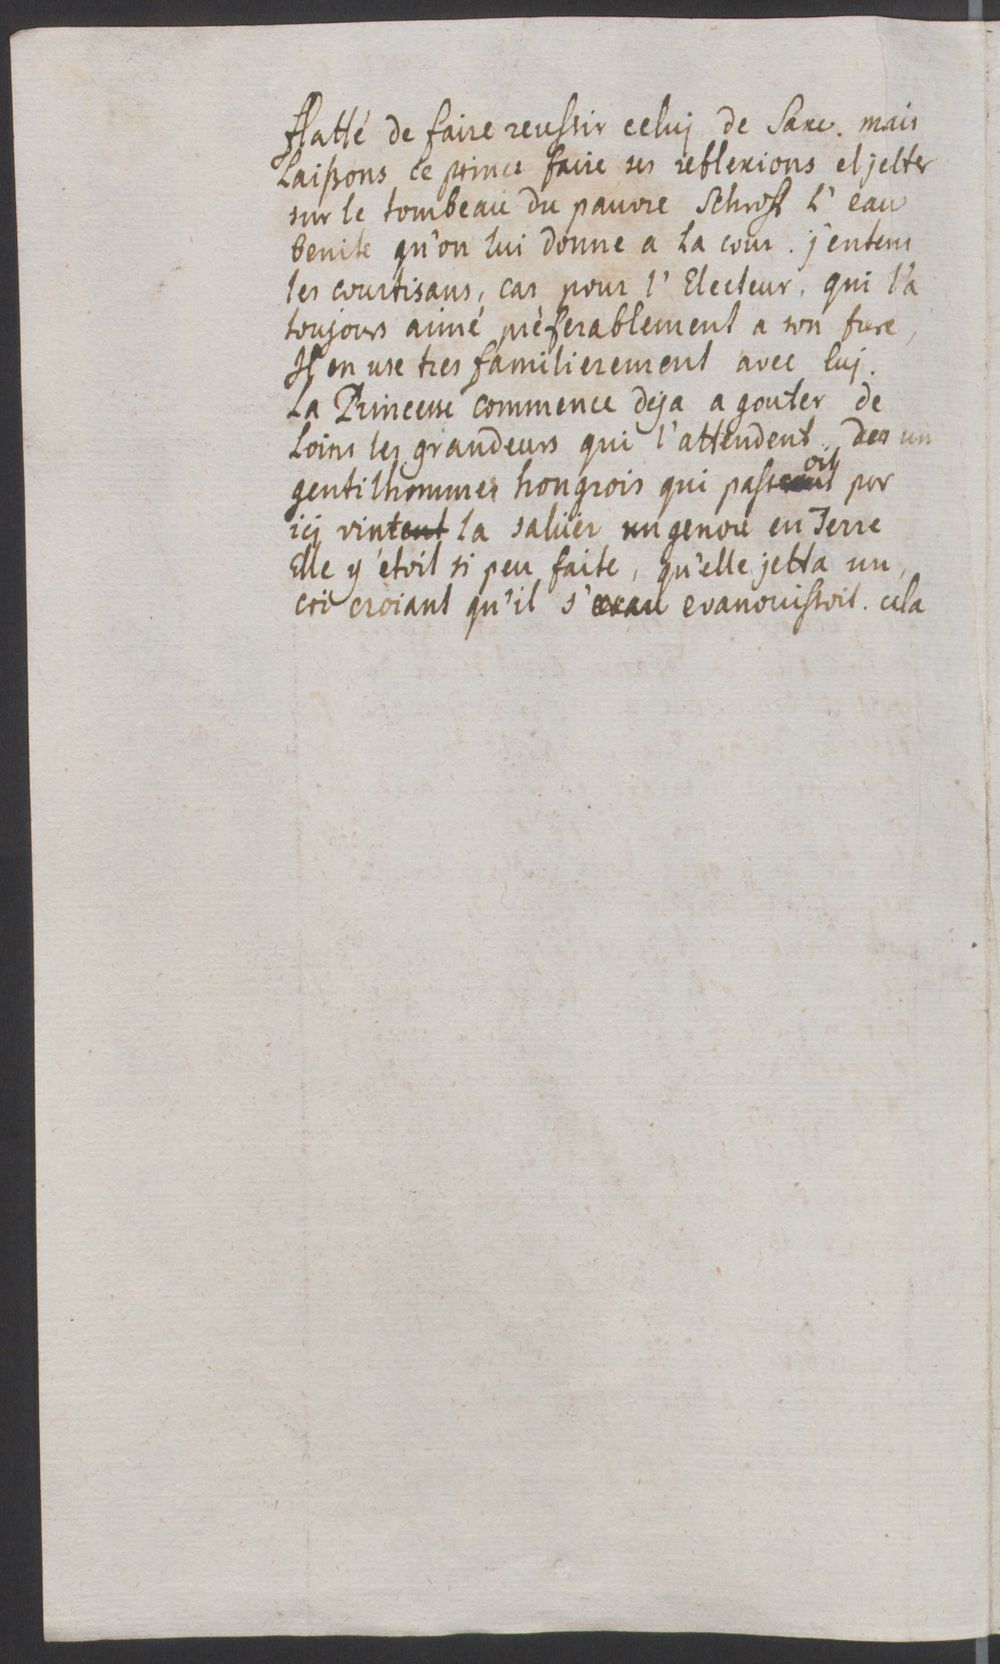 flatté de faire reussir celuj de Saxe. mais
Laissons ce prince faire ses reflexions et jetter
sur le tombeau du pauvre Schrost l'eau
benite qu'on lui donne a la cour. j'entens
les courtisans, car pour l'Electeur, qui l'a
toujours aimé prèferablement a son frere,
Il en use tres familierement avec luj.
La Princesse commence deja a gouter de
Loins les grandeurs qui l'attendent. un
gentilhommes hongrois qui passoit par
icj vint la salüer un genou en Terre
Elle y étoit si peu faite, qu'elle jetta un
cri croiant qu'il s' evanouissoit. cela